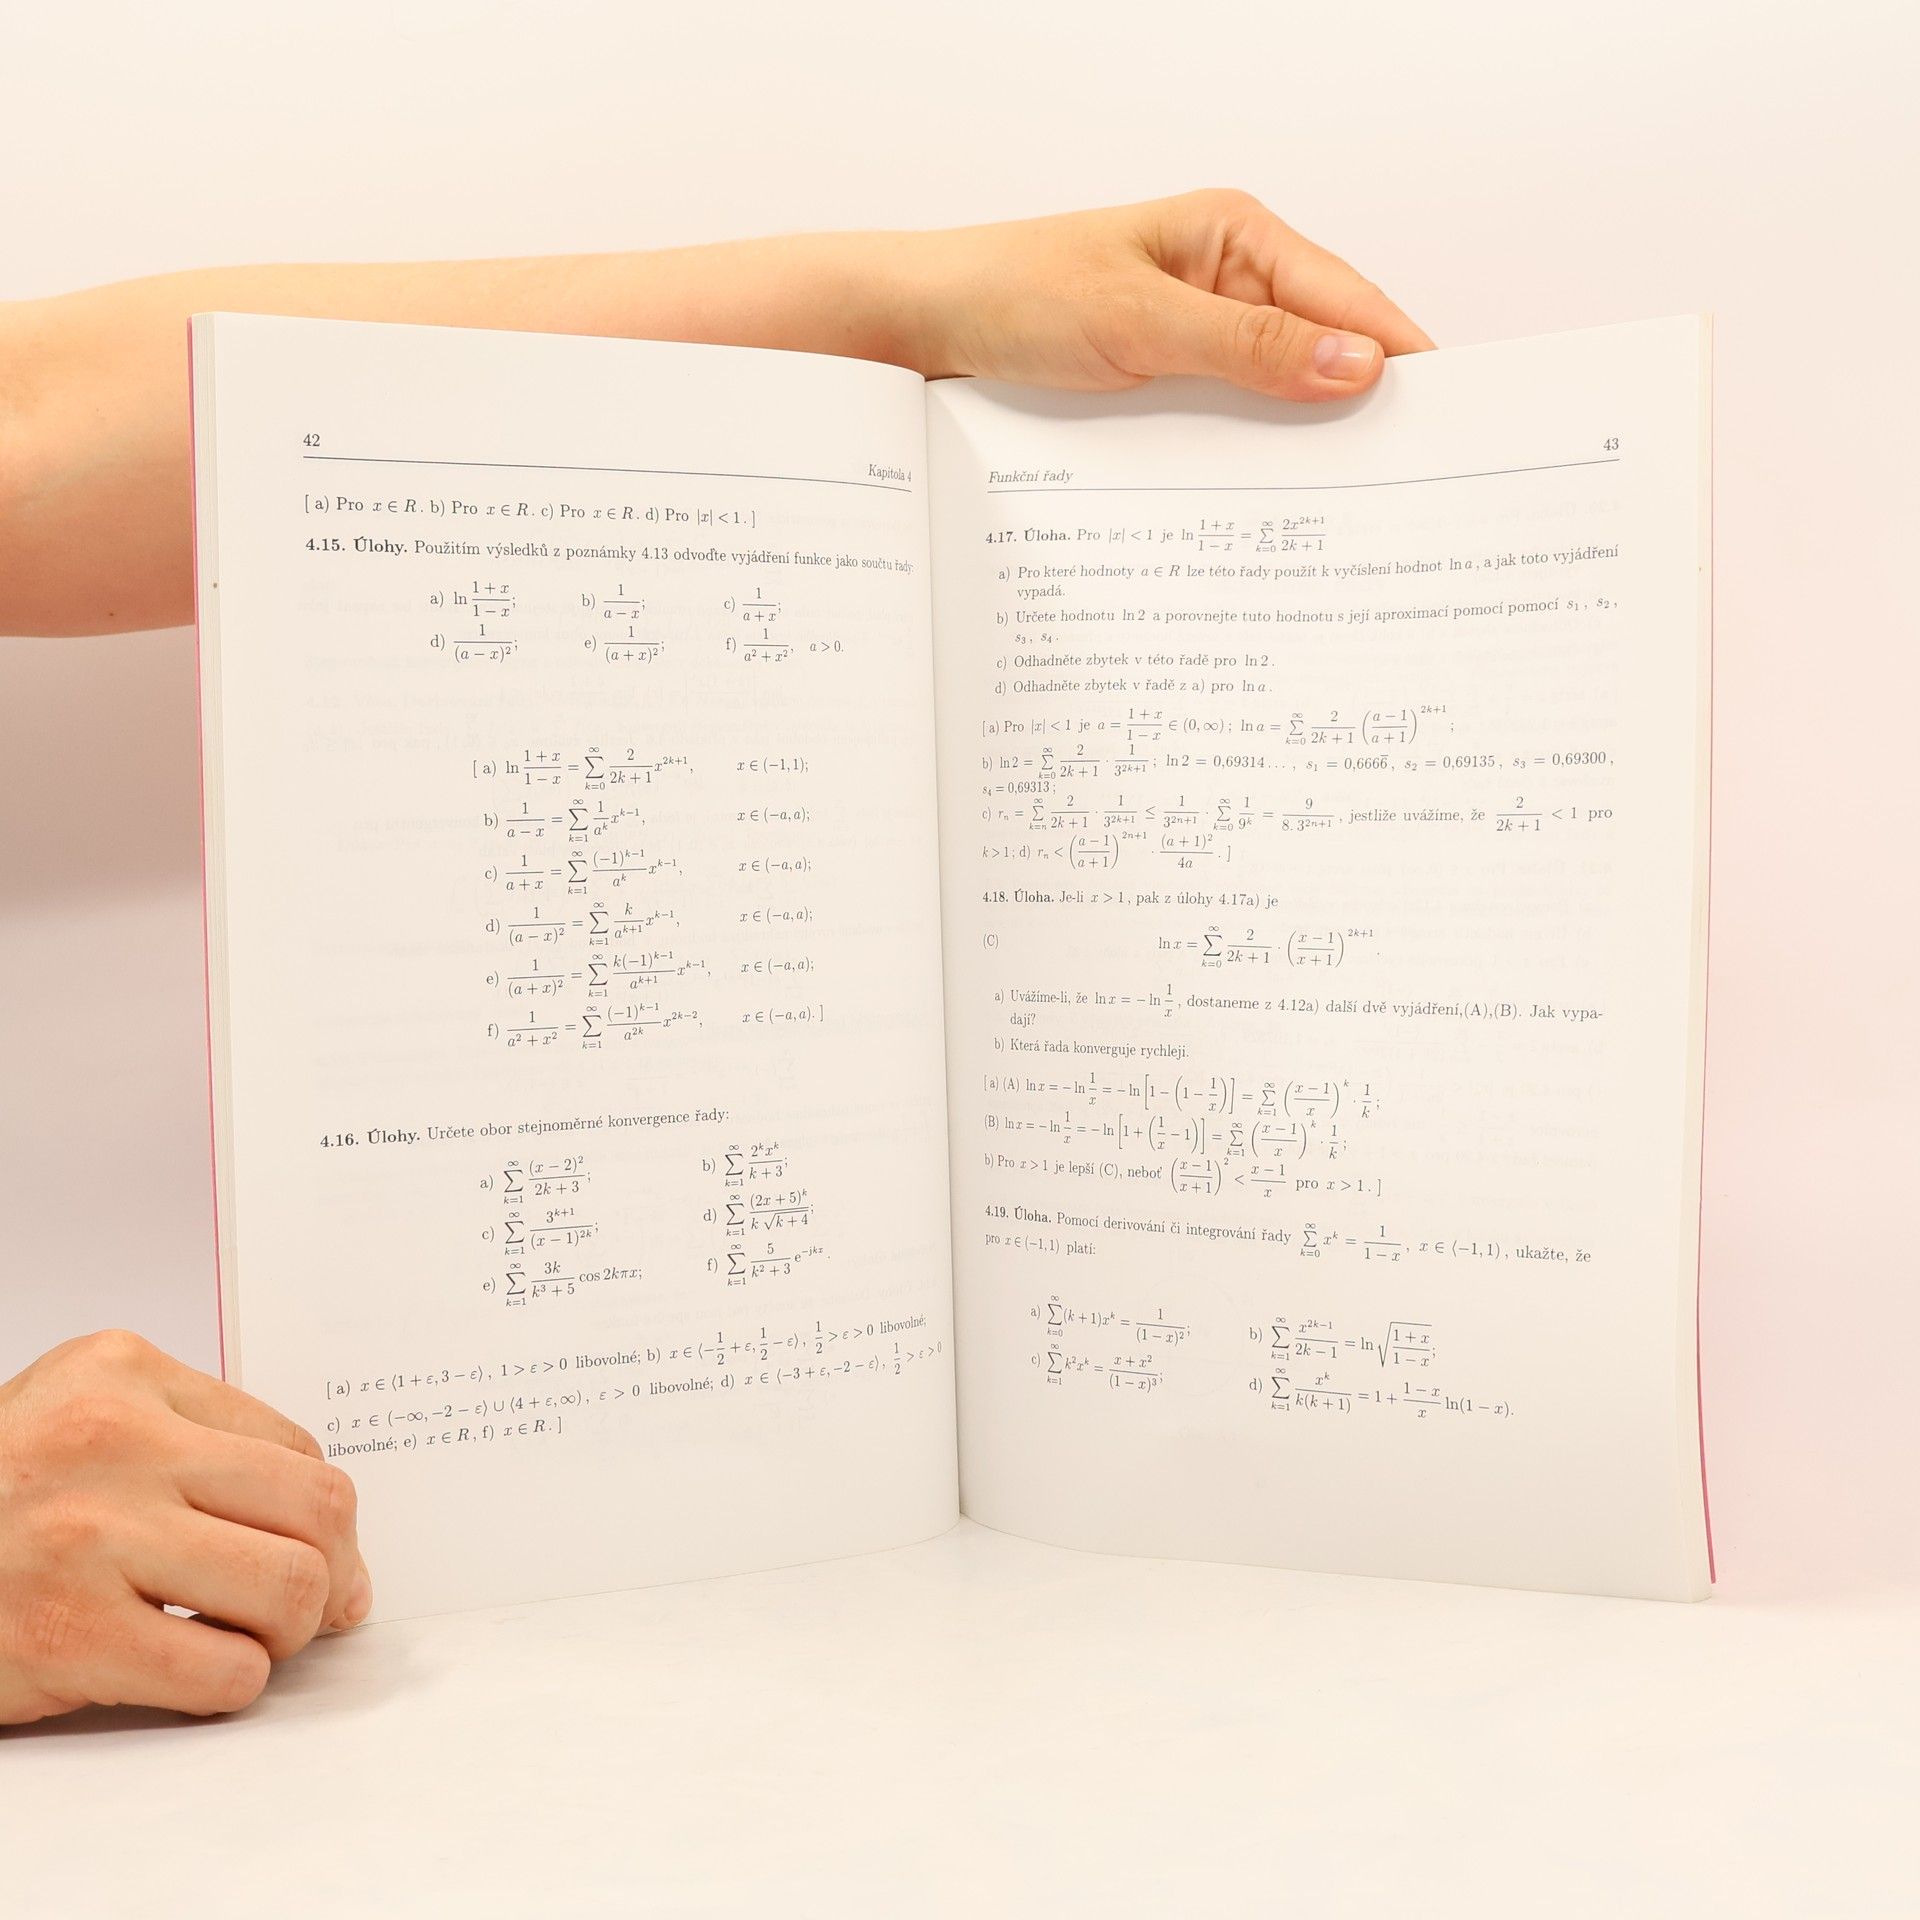 42
Kapitola 4
[ a) Pro x ∈ R. b) Pro x ∈ R. c) Pro x ∈ R. d) Pro |x| < 1. ]
4.15. Úlohy. Použitím výsledků z poznámky 4.13 odvoďte vyjádření funkce jako součtu řady:
a) ln (1 + x)/(1 − x); b) 1/(a − x); c) 1/(a + x);
d) 1/(a − x)²; e) 1/(a + x)²; f) 1/(a² + x²), a > 0.
[ a) ln (1 + x)/(1 − x) = ∑_{k=0}^{∞} 2/(2k + 1) x^{2k+1}, x ∈ (−1, 1);
b) 1/(a − x) = ∑_{k=1}^{∞} 1/a^k x^{k−1}, x ∈ (−a, a);
c) 1/(a + x) = ∑_{k=1}^{∞} (−1)^{k−1}/a^k x^{k−1}, x ∈ (−a, a);
d) 1/(a − x)² = ∑_{k=1}^{∞} k/a^{k+1} x^{k−1}, x ∈ (−a, a);
e) 1/(a + x)² = ∑_{k=1}^{∞} k(−1)^{k−1}/a^{k+1} x^{k−1}, x ∈ (−a, a);
f) 1/(a² + x²) = ∑_{k=1}^{∞} (−1)^{k−1}/a^{2k} x^{2k−2}, x ∈ (−a, a). ]
4.16. Úlohy. Určete obor stejnoměrné konvergence řady:
a) ∑_{k=1}^{∞} (x − 2)²/(2k + 3); b) ∑_{k=1}^{∞} 2^k x^k/(k + 3);
c) ∑_{k=1}^{∞} 3^{k+1}/(x − 1)^{2k}; d) ∑_{k=1}^{∞} (2x + 5)^k/(k √(k + 4));
e) ∑_{k=1}^{∞} 3k/(k³ + 5) cos 2kπx; f) ∑_{k=1}^{∞} 5/(k² + 3) e^{−jkx}.
[ a) x ∈ ⟨1 + ε, 3 − ε⟩, 1 > ε > 0 libovolné; b) x ∈ ⟨−1/2 + ε, 1/2 − ε⟩, 1/2 > ε > 0 libovolné;
c) x ∈ (−∞, −2 − ε⟩ ∪ ⟨4 + ε, ∞), ε > 0 libovolné; d) x ∈ ⟨−3 + ε, −2 − ε⟩, 1/2 > ε > 0
libovolné; e) x ∈ R, f) x ∈ R. ]
43
Funkční řady
4.17. Úloha. Pro |x| < 1 je ln (1 + x)/(1 − x) = ∑_{k=0}^{∞} 2x^{2k+1}/(2k + 1)
a) Pro které hodnoty a ∈ R lze této řady použít k vyčíslení hodnot ln a, a jak toto vyjádření
vypadá.
b) Určete hodnotu ln 2 a porovnejte tuto hodnotu s její aproximací pomocí pomocí s₁, s₂,
s₃, s₄.
c) Odhadněte zbytek v této řadě pro ln 2.
d) Odhadněte zbytek v řadě z a) pro ln a.
[ a) Pro |x| < 1 je a = (1 + x)/(1 − x) ∈ (0, ∞); ln a = ∑_{k=0}^{∞} 2/(2k + 1) ((a − 1)/(a + 1))^{2k+1};
b) ln 2 = ∑_{k=0}^{∞} 2/(2k + 1) · 1/3^{2k+1}; ln 2 = 0,69314..., s₁ = 0,6666̅, s₂ = 0,69135, s₃ = 0,69300,
s₄ = 0,69313;
c) rₙ = ∑_{k=n}^{∞} 2/(2k + 1) · 1/3^{2k+1} ≤ 1/3^{2n+1} · ∑_{k=0}^{∞} 1/9^k = 9/(8. 3^{2n+1}), jestliže uvážíme, že 2/(2k + 1) < 1 pro
k > 1; d) rₙ < ((a − 1)/(a + 1))^{2n+1} · (a + 1)²/4a. ]
4.18. Úloha. Je-li x > 1, pak z úlohy 4.17a) je
(C) ln x = ∑_{k=0}^{∞} 2/(2k + 1) · ((x − 1)/(x + 1))^{2k+1}.
a) Uvážíme-li, že ln x = − ln 1/x, dostaneme z 4.12a) další dvě vyjádření,(A),(B). Jak vypa-
dají?
b) Která řada konverguje rychleji.
[ a) (A) ln x = − ln 1/x = − ln [1 − (1 − 1/x)] = ∑_{k=1}^{∞} ((x − 1)/x)^k · 1/k;
(B) ln x = − ln 1/x = − ln [1 + (1/x − 1)] = ∑_{k=1}^{∞} ((x − 1)/x)^k · 1/k;
b) Pro x > 1 je lepší (C), neboť ((x − 1)/(x + 1))² < (x − 1)/x pro x > 1. ]
4.19. Úloha. Pomocí derivování či integrování řady ∑_{k=0}^{∞} x^k = 1/(1 − x), x ∈ (−1, 1), ukažte, že
pro x ∈ (−1, 1) platí:
a) ∑_{k=0}^{∞} (k + 1)x^k = 1/(1 − x)²; b) ∑_{k=1}^{∞} x^{2k−1}/(2k − 1) = ln √((1 + x)/(1 − x));
c) ∑_{k=1}^{∞} k²x^k = (x + x²)/(1 − x)³; d) ∑_{k=1}^{∞} x^k/(k(k + 1)) = 1 + (1 − x)/x ln(1 − x).